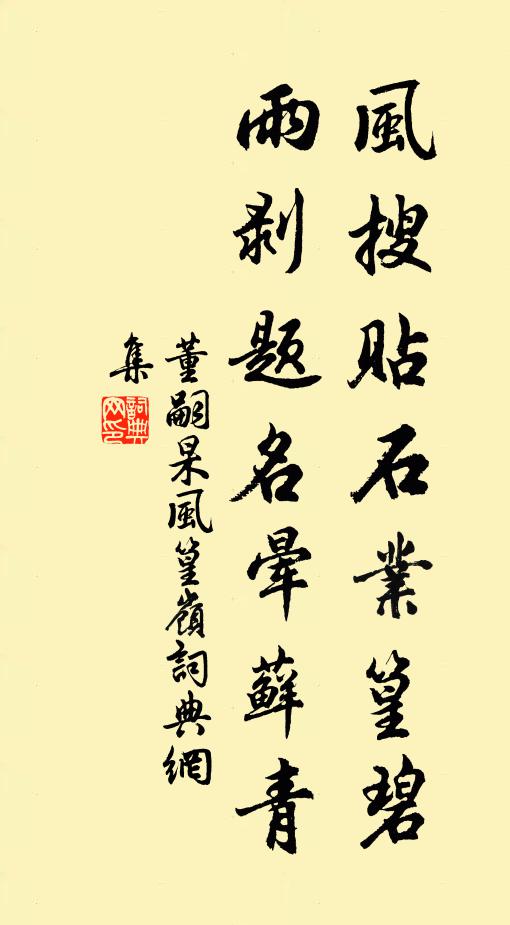 風搜貼石業篁碧
雨剝題名暈蘚青
董嗣杲風篁嶺詞典網
集
詞典網印